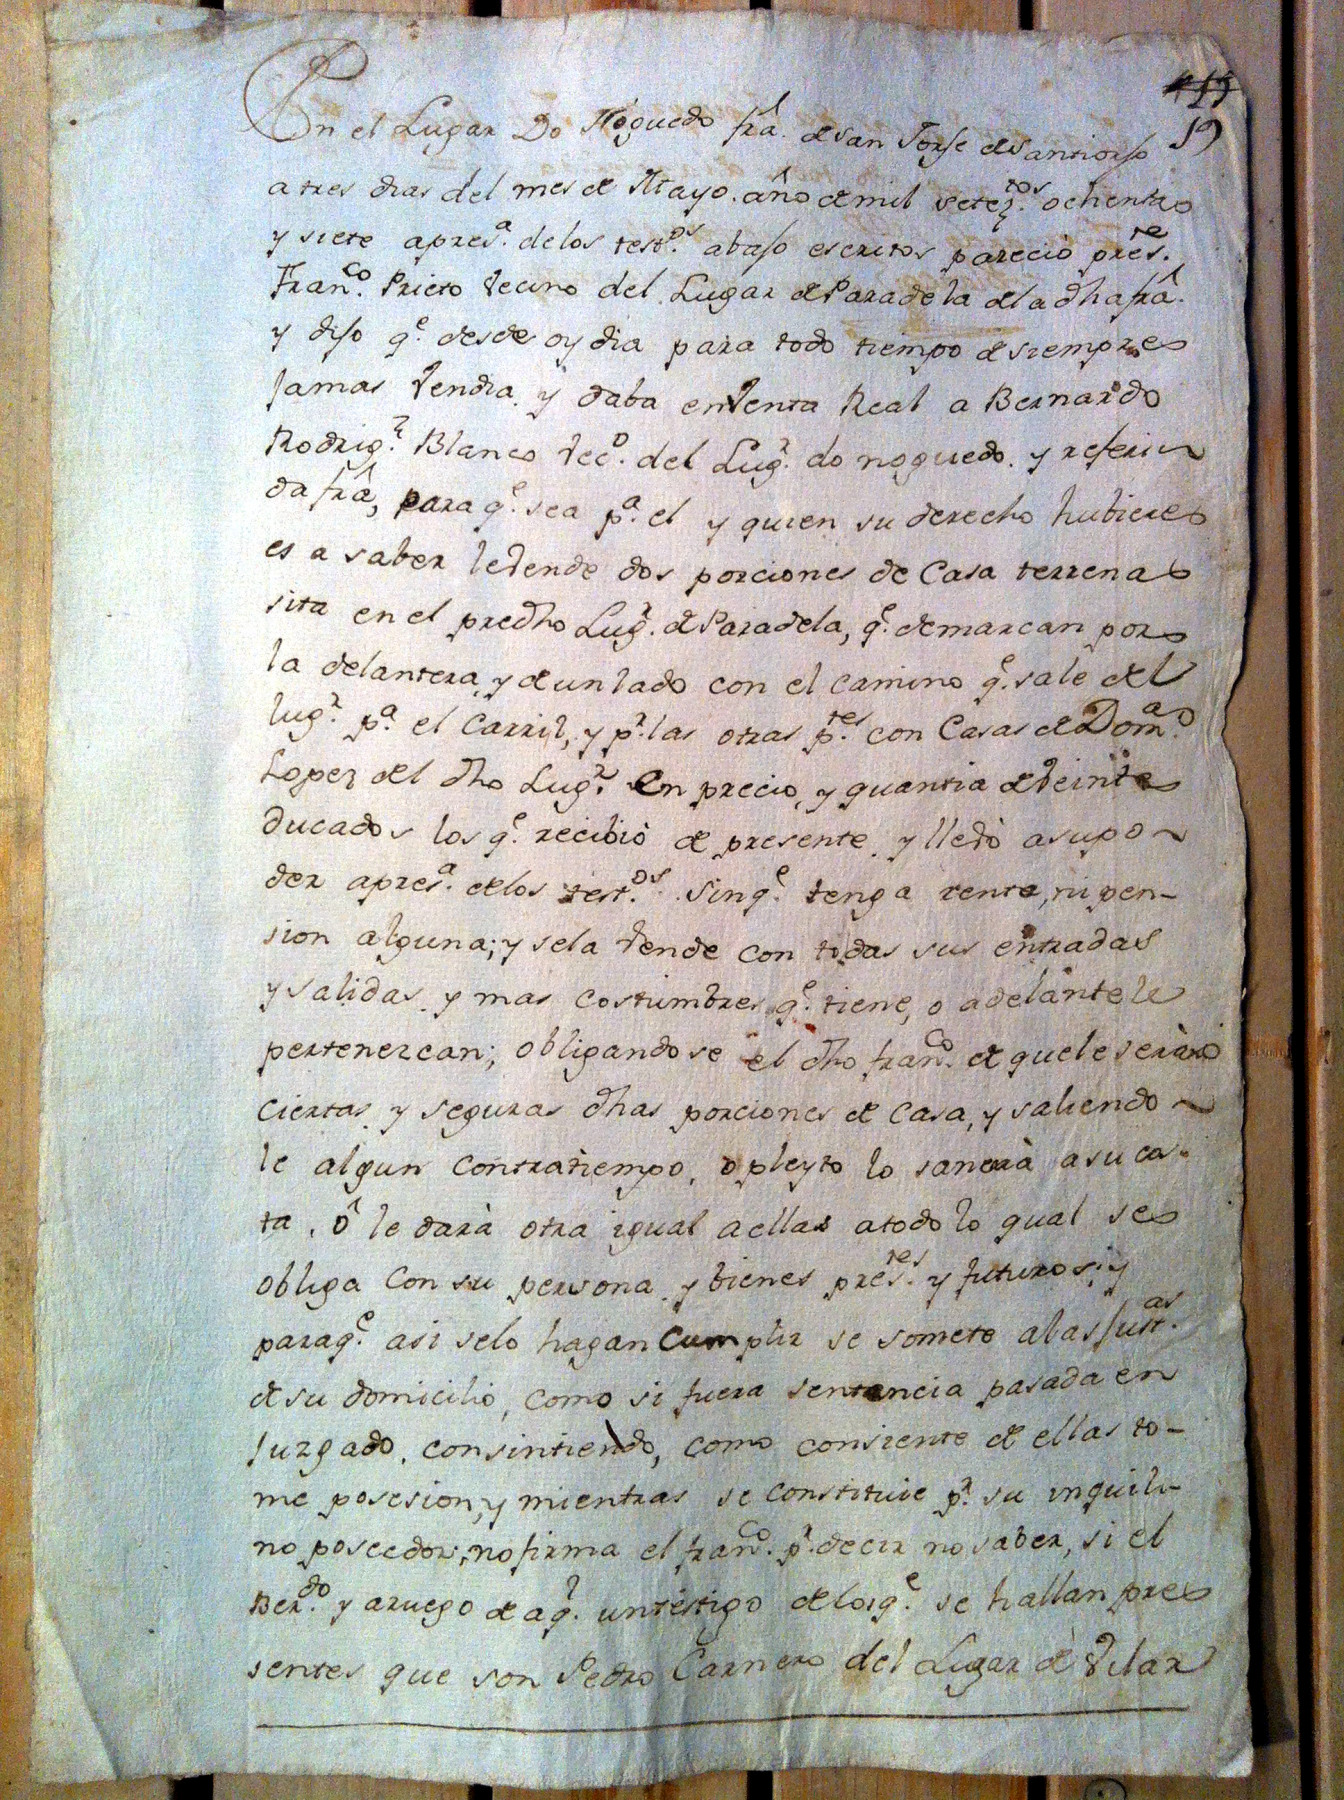 19
En el Lugar Do Noguedo frâ. de san Jorse de santiorso
a tres dias del mes de Mayo. año de mil setez.tos ochenta
y siete apres.a de los test.os abajo escritos pareciò pres.te
Fran.co Prieto vecino del Lugar de Paradela de la dha frâ.
y dijo q.e desde oy dia para todo tiempo de siempre
Jamas vendia y daba en venta Real a Bernardo
Rodrig.z Blanco vec.o del Lug.r do noguedo. y referi~
da frâ, para q.e sea p.a el y quien su derecho hubiere
es a saber le vende dos porciones de Casa terrena
sita en el predho Lug.r de Paradela, q.e demarcan por
la delantera, y de un lado con el camino q.e sale del
lug.r p.a el Carril, y p.r las otras p.tes con Casas de Dom.ao
Lopez del dho Lug.r en precio, y quantia de veinte
ducados los q.e recibiò de presente y llevò a su po~
der apres.a de los test.os sin q.e tenga renta, ni pen-
sion alguna; y se la vende con todas sus entradas
y salidas y mas costumbres q.e tiene, o adelante le
pertenezcan; obligandose el dho fran.co de que le seràn
ciertas y seguras dhas porciones de Casa, y saliendo~
le algun contratiempo, o pleyto lo sanearà a su cos-
ta, ô le darà otra igual a ellas a todo lo qual se
obliga con su persona y bienes pres.tes y futuros; y
para q.e asi se lo hagan Cumplir se somete a las Just.as
de su domicilio, como si fuera sentencia pasada en
Juzgado, consintiendo, como consiente de ellas to-
me posesion, y mientras se constituie p.r su inquili-
no poseedor; no firma el fran.co p.r decir no saber, si el
Ber.do y a ruego de aq.l un testigo de los q.e se hallan pre
sentes que son Pedro Carnero del Lugar de Vilar